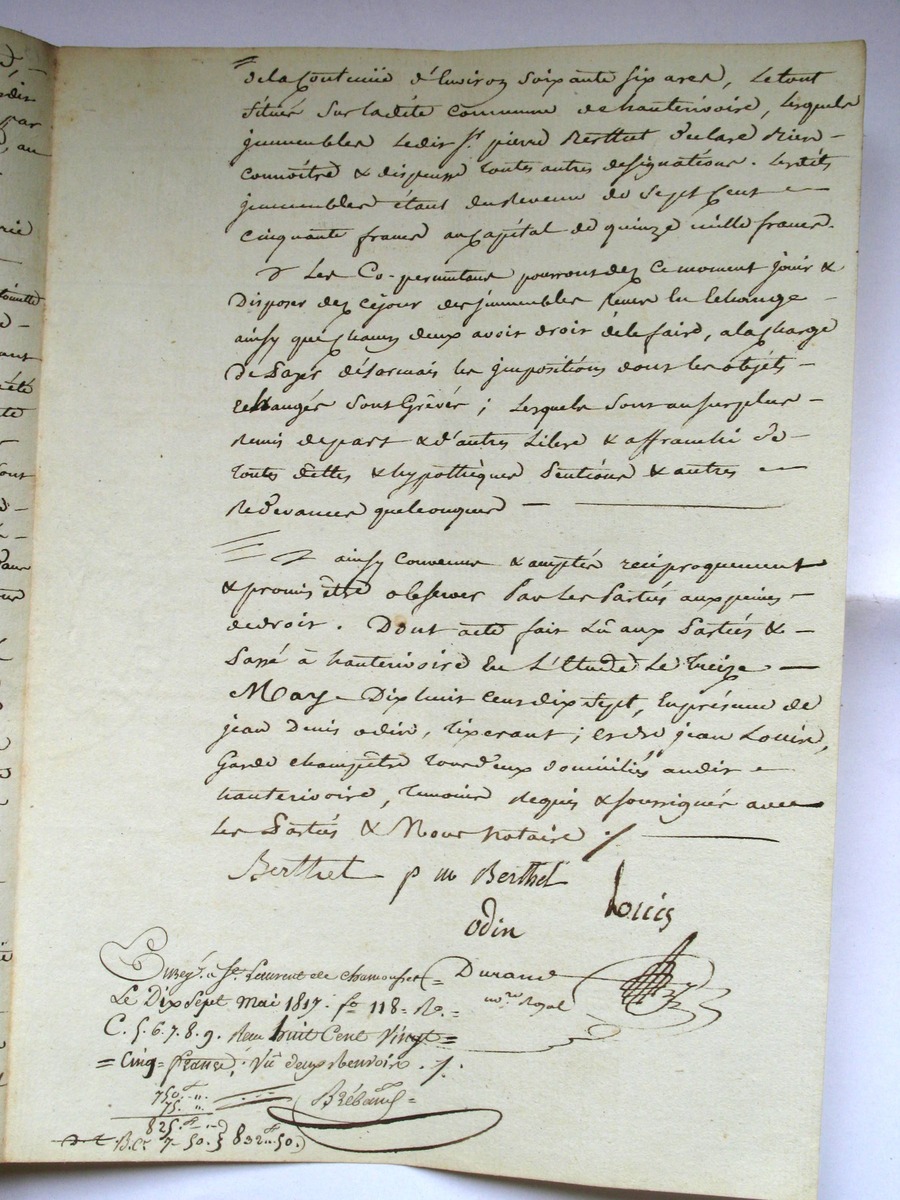 de la Contenüe d'Environ soixante six ares, Le tout
situés sur ladite commune de hauterivoire, Lesquels
jmmeubles Ledit Sr. pierre Berthet déclare Bien
connoître & dispense toutes autres désignations. Lesdits
jmmeubles étant du Revenu de Sept Cent
Cinquante francs au Capital de quinze mille francs.
Les Co-permutans pourront dez ce moment jouir &
Disposer dez ce jour des jmmeubles Remis En Echange
ainsy que chacun deux avoit droit de le faire, a la charge
De Payer désormais les jmpositions dont les objets
Echangés Sont Grévés ; Lesquels Sont au surplus
Remis de part & d'autres Libre & affranchi de
toutes dettes & hypothèques Pentions & autres
Redevances quelconques
ainsy Convenu & accepté reciproquement
& promis être observer Par Les Parties aux peines
de droit. Dont acte fait Lû aux Parties &
Passé à hauterivoire En L'Etude Le treize
May Dix huit cent dix Sept, En présence de
jean Denis odin, tixerant ; & de jean Louis,
Garde champêtre tous deux domiciliés audit
hauterivoire, temoins requis & soussignés avec
Les Parties & Nous Notaire ./.
Berthet p m Berthet
Louis
odin
Enregt. à St. Laurent de Chamousset
Durand
Le Dix Sept Mai 1817. fo 118. Ro.
nore Royal
C. 5. 6. 7. 8. 9. Reçu huit Cent Vingt =
= Cinq = francs, Vu deux Renvois ./.
750.f "
75. "
825.f "
B.Ct 7-50. } 832 " 50.